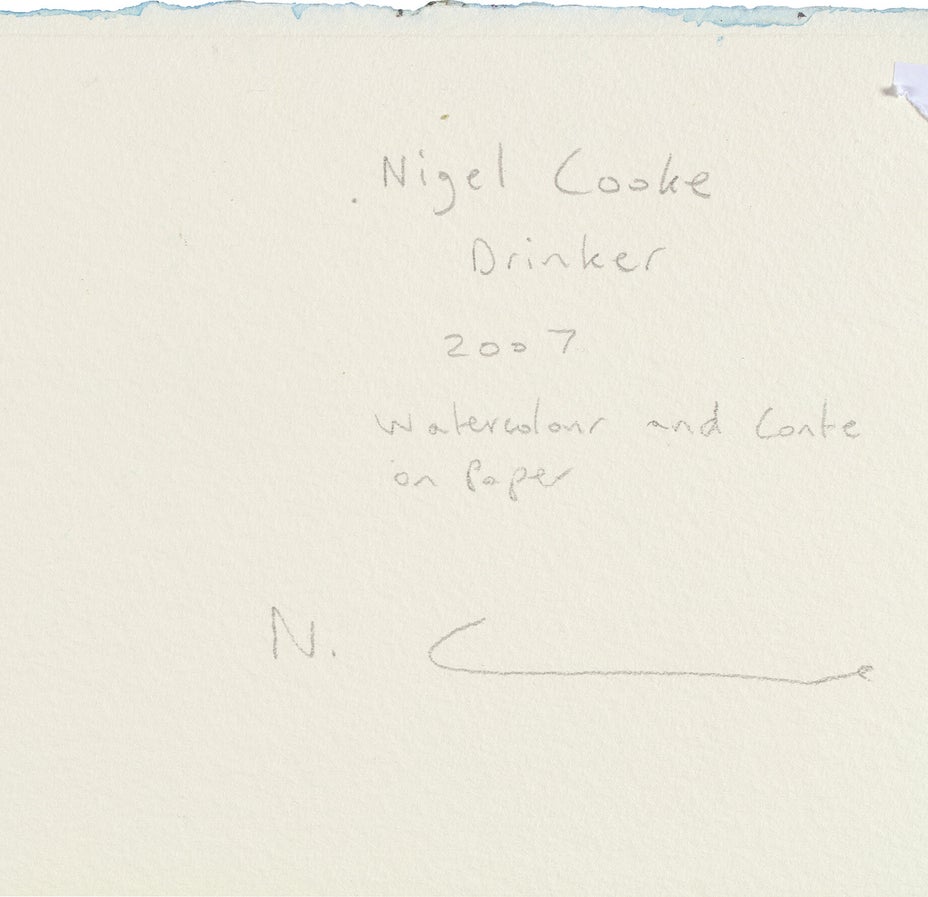 Nigel Cooke
Drinker
2007
Watercolour and Conte
on Paper
N. C